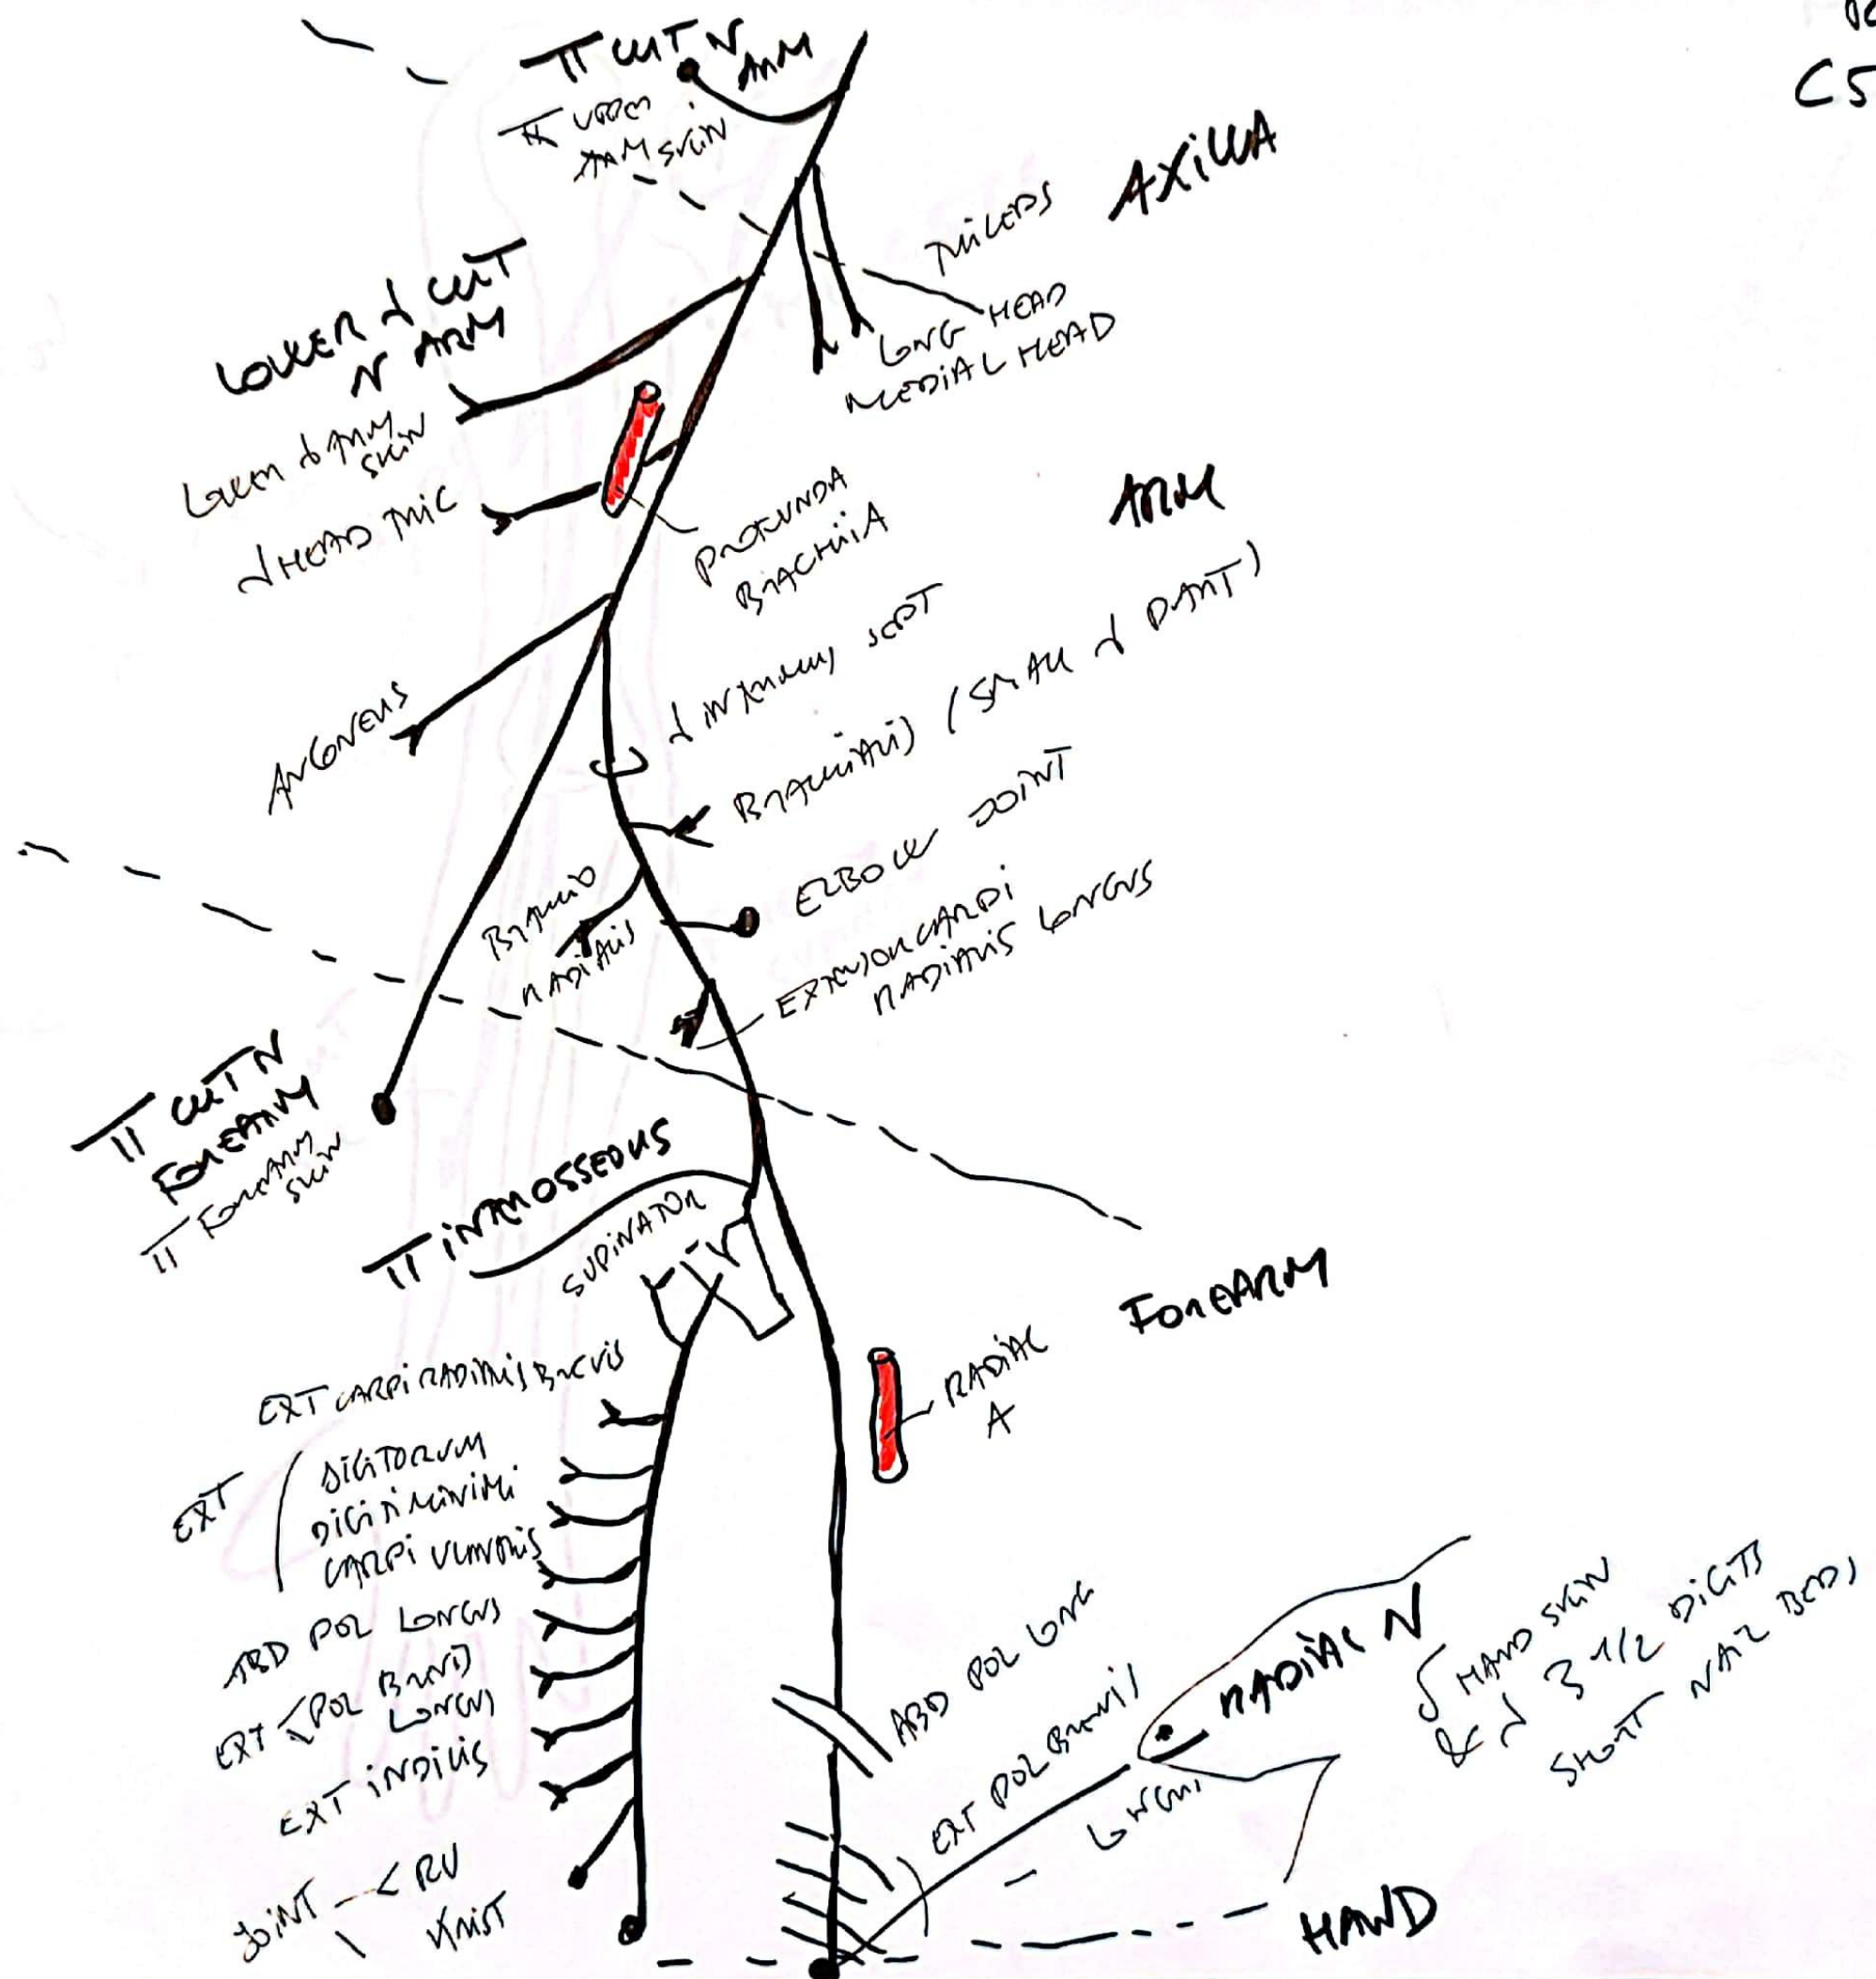 C5
Π CUT N
ARM
Π UPPER
ARM SKIN
AXILLA
TRICEPS
LONG HEAD
MEDIAL HEAD
LOWER L CUT
N ARM
LOWER L ARM
SKIN
L HEAD TRIC
PROFUNDA
BRACHIIA
ARM
L INTERMUSC SEPT
ANCONEUS
BRACHIALIS (SMALL L PART)
ELBOW JOINT
BRACHIO
RADIALIS
EXTENSOR CARPI
RADIALIS LONGUS
Π CUT N
FOREARM
Π FOREARM
SKIN
Π INTEROSSEOUS
SUPINATOR
FOREARM
RADIAL
A
EXT CARPI RADIALIS BREVIS
EXT
DIGITORUM
DIGITI MINIMI
CARPI ULNARIS
ABD POL LONGUS
EXT POL BREVIS
LONGUS
EXT INDICIS
JOINT RU
WRIST
ABD POL LONG
EXT POL BREVIS
LONGUS
RADIAL N
HAND SKIN
& L 3 1/2 DIGITS
SHORT NAIL BEDS
HAND